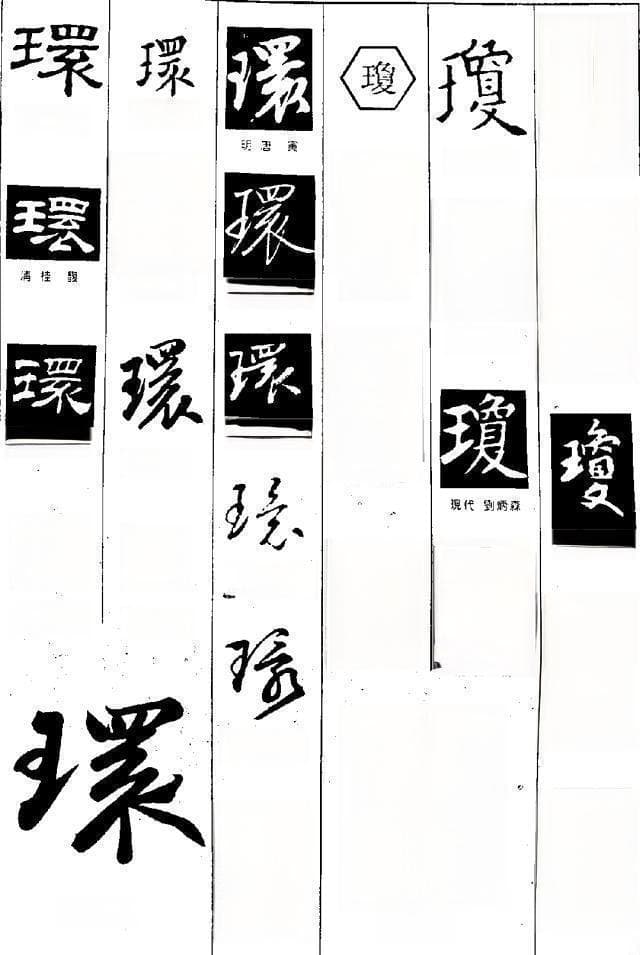 環
環
清 桂 馥
環
環
環
環
環
明 唐 寅
環
環
環
環
瓊
瓊
瓊
現代 劉炳森
瓊